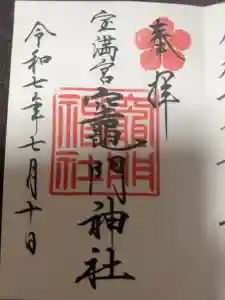 奉拝
宝満宮
竈門神社
令和七年七月十日
竈門
神社